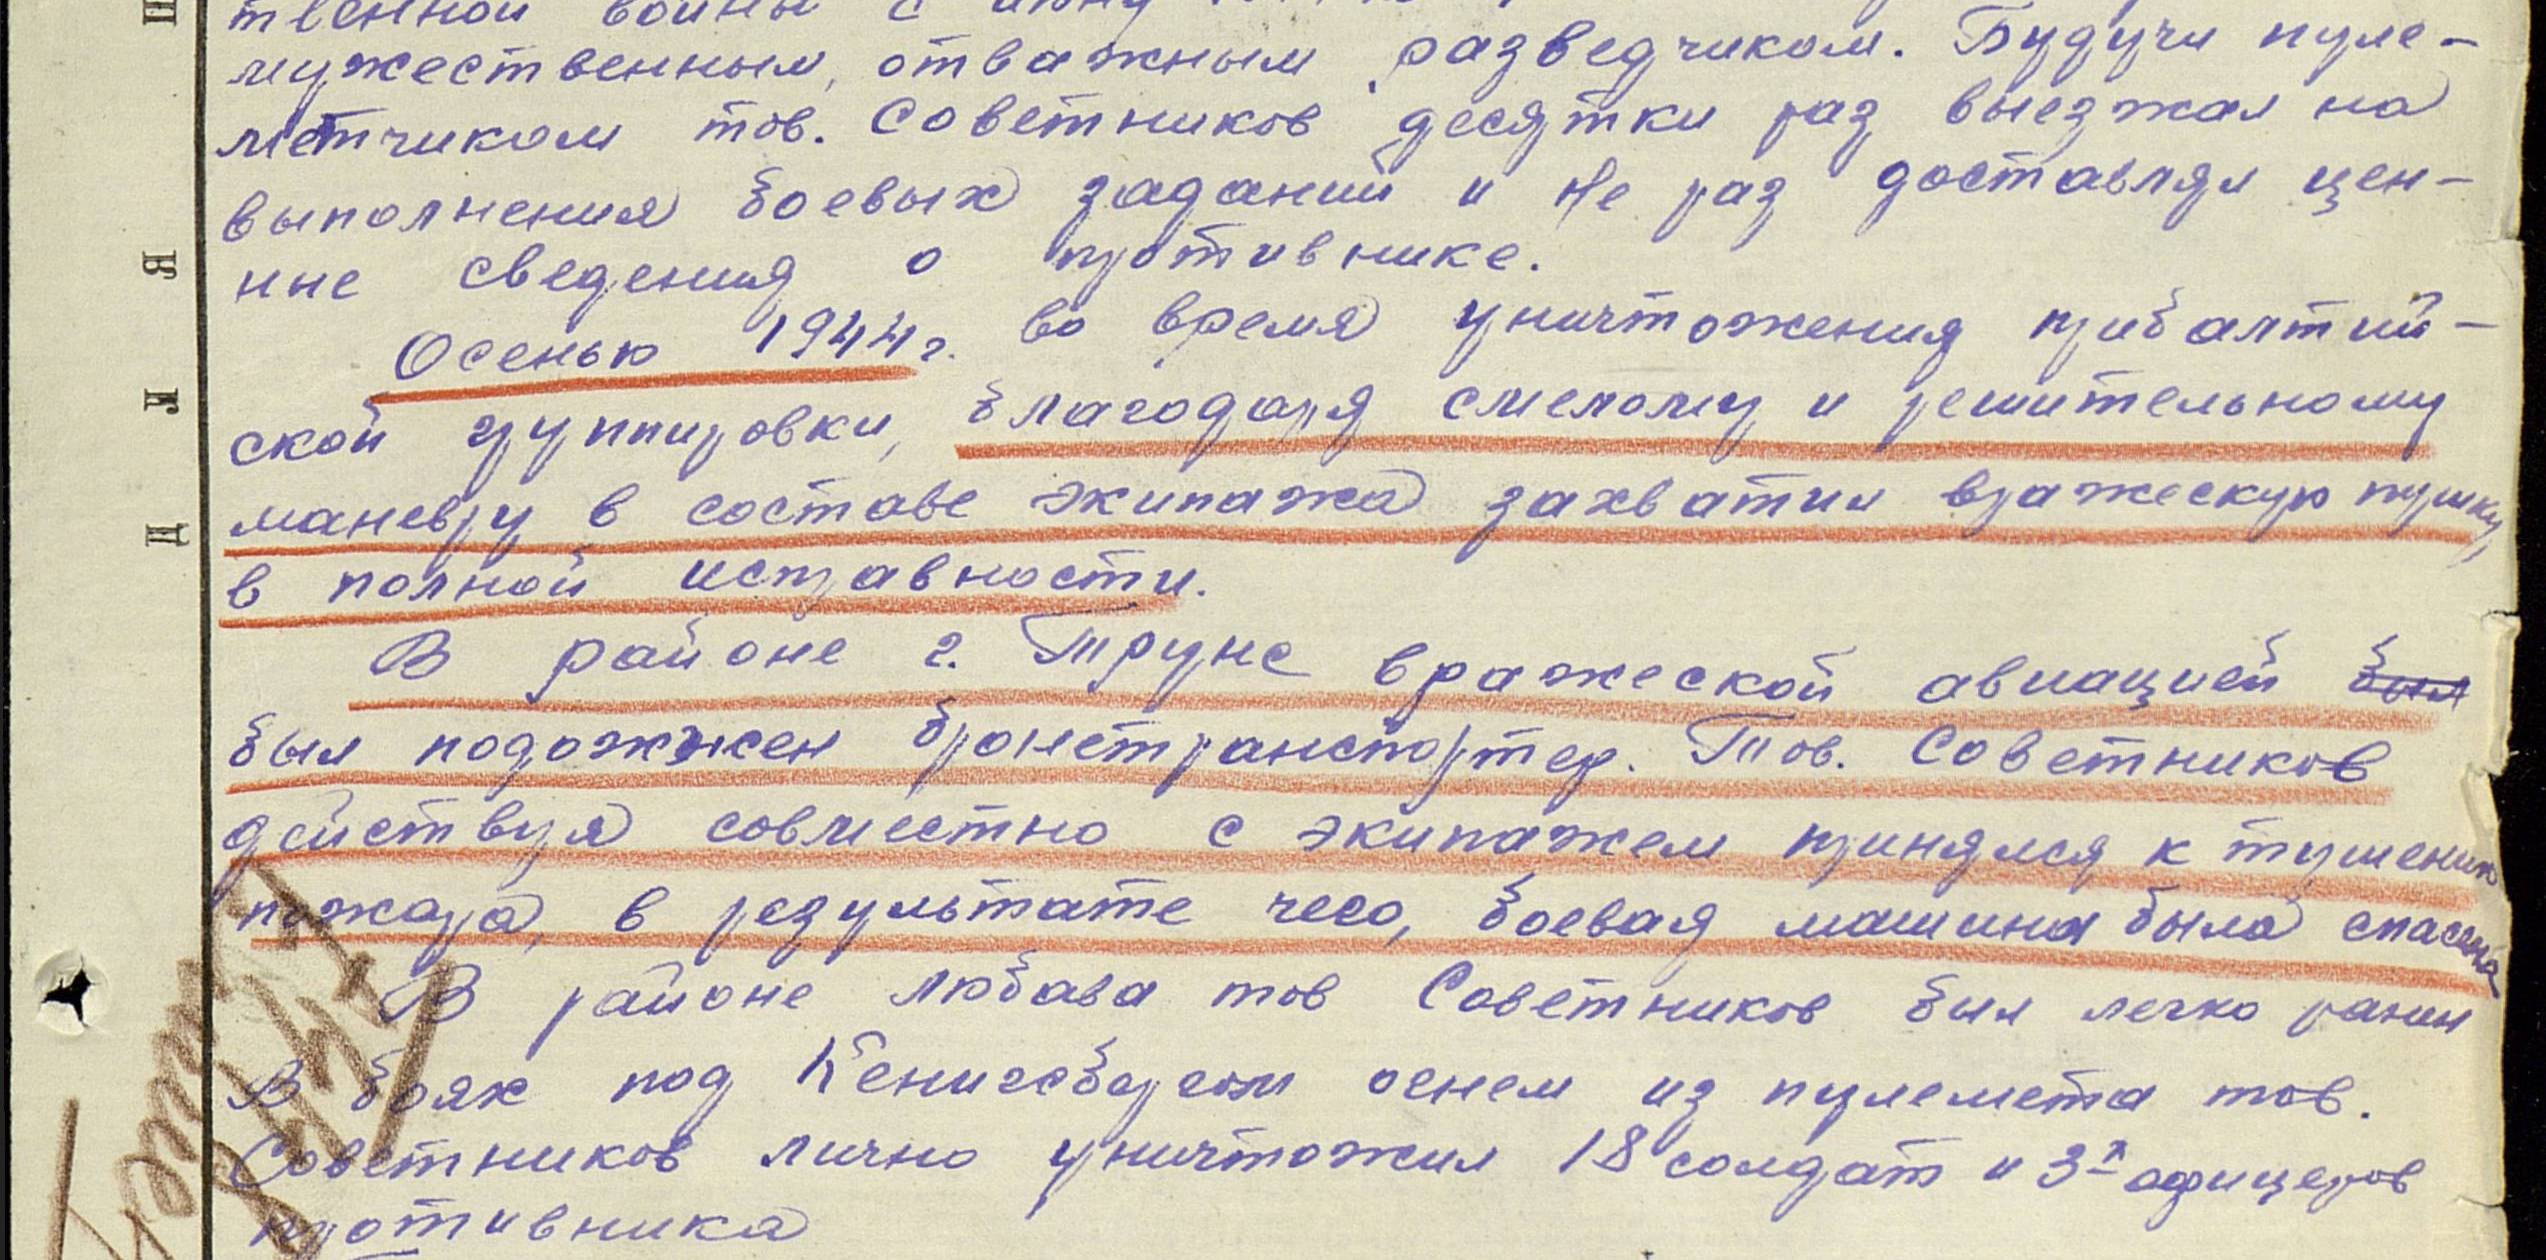 твенной войны с
мужественным, отважным разведчиком. Будучи пуле-
метчиком тов. Советников десятки раз выезжал на
выполнения боевых заданий и не раз доставлял цен-
ные сведения о противнике.
Осенью 1944 г. во время уничтожения прибалтий-
ской группировки, благодаря смелому и решительному
маневру в составе экипажа захватил вражескую пушку,
в полной исправности.
В районе г. Трунс вражеской авиацией был
был подожжен бронетранспортер. Тов. Советников
действуя совместно с экипажем принялся к тушению
пожара, в результате чего, боевая машина была спасена
В районе любава тов Советников был легко ранен
В бояк под Кенигсбергом огнем из пулемета тов.
Советников лично уничтожил 18 солдат и 3х офицеров
противника
П
В
Г
Д